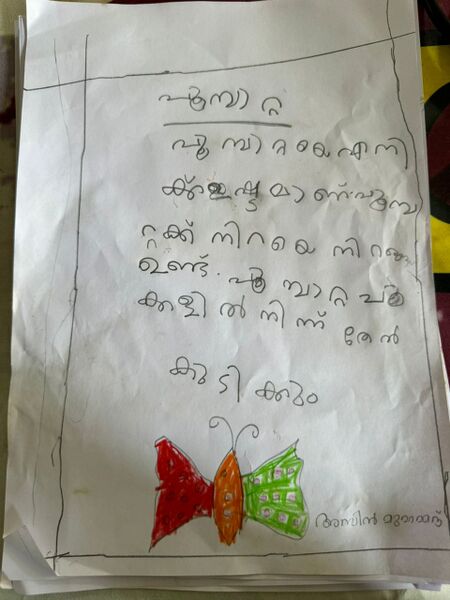 പൂമ്പാറ്റ
പൂമ്പാറ്റയെഎനി
ക്ക്ഇഷ്ടമാണ്പൂമ്പ
റ്റക്ക് നിറയെ നിറങ്ങ
ഉണ്ട്. പൂമ്പാറ്റ പൂ
ക്കളിൽ നിന്ന് തേൻ
കുടിക്കും